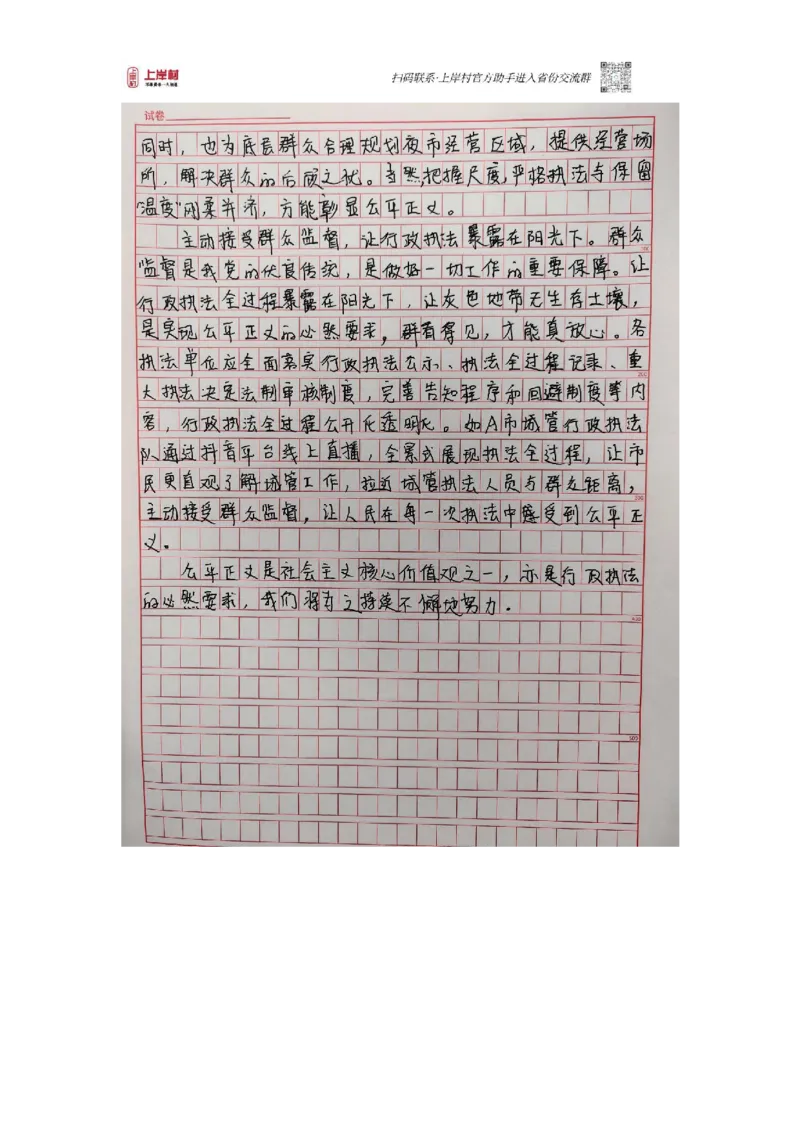 上岸村
扫码联系·上岸村官方助手进入省份交流群
试卷
同时，也为底层群众合理规划夜市经营区域，提供经营场
所，解决群众的后顾之忧。当然，把握尺度，严格执法与保留
“温度”刚柔并济，方能彰显公平正义。
主动接受群众监督，让行政执法暴露在阳光下。群众
监督是我党的优良传统，是做好一切工作的重要保障。让
行政执法全过程暴露在阳光下，让灰色地带无生存土壤，
是实现公平正义的必然要求，群看得见，才能真放心。各
执法单位应全面落实行政执法公示、执法全过程记录、重
大执法决定法制审核制度，完善告知程序和回避制度等内
容，行政执法全过程公开化透明化。如A市城管行政执法
队通过抖音平台线上直播，全景式展现执法全过程，让市
民更直观了解城管工作，拉近城管执法人员与群众距离，
主动接受群众监督，让人民在每一次执法中感受到公平正
义。
公平正义是社会主义核心价值观之一，亦是行政执法
的必然要求，我们将为之持续不懈地努力。